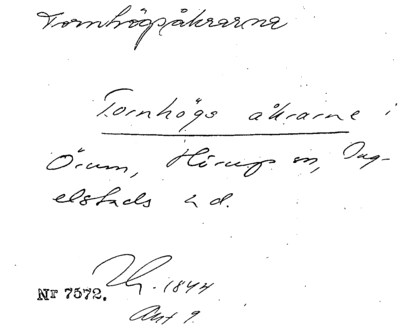 Tornhögsåkrarna
Tornhögs åkrarne i
Örum, Hörups sn, Ing-
elstads hd.
1844
Nr 7572.
Akt 9.